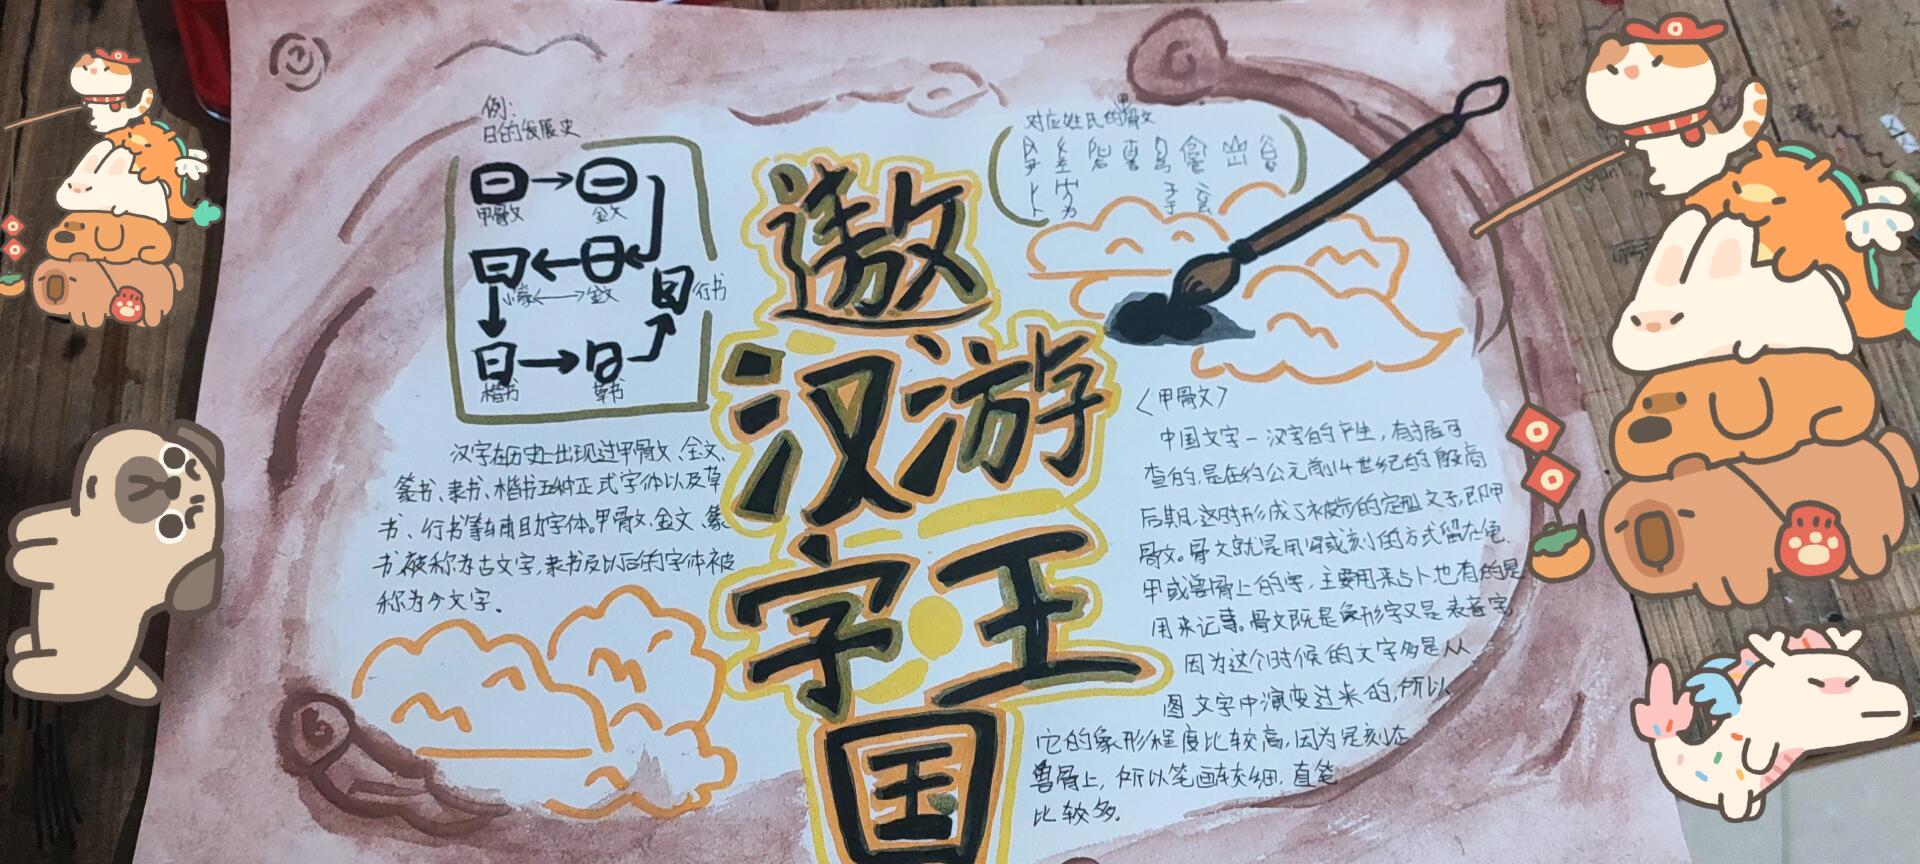 例:
日的发展史
甲骨文
金文
小篆
金文
行书
楷书
草书
汉字在历史上出现过甲骨文、金文、
篆书、隶书、楷书五种正式字体以及草
书、行书等辅助字体。甲骨文、金文、篆
书被称为古文字,隶书及以后的字体被
称为今文字。
遨
汉游
字王
国
对应姓氏的甲骨文
〈甲骨文〉
中国文字一汉字的产生,有据可
查的,是在约公元前14世纪的殷商
后期,这时形成了初步的定型文字,即甲
骨文。骨文就是用写或刻的方式留在龟
甲或兽骨上的字,主要用来占卜也有的是
用来记事。骨文既是象形字又是表音字
因为这个时候的文字多是从
图文字中演变过来的,所以
它的象形程度比较高,因为是刻在
兽骨上,所以笔画较细,直笔
比较多。